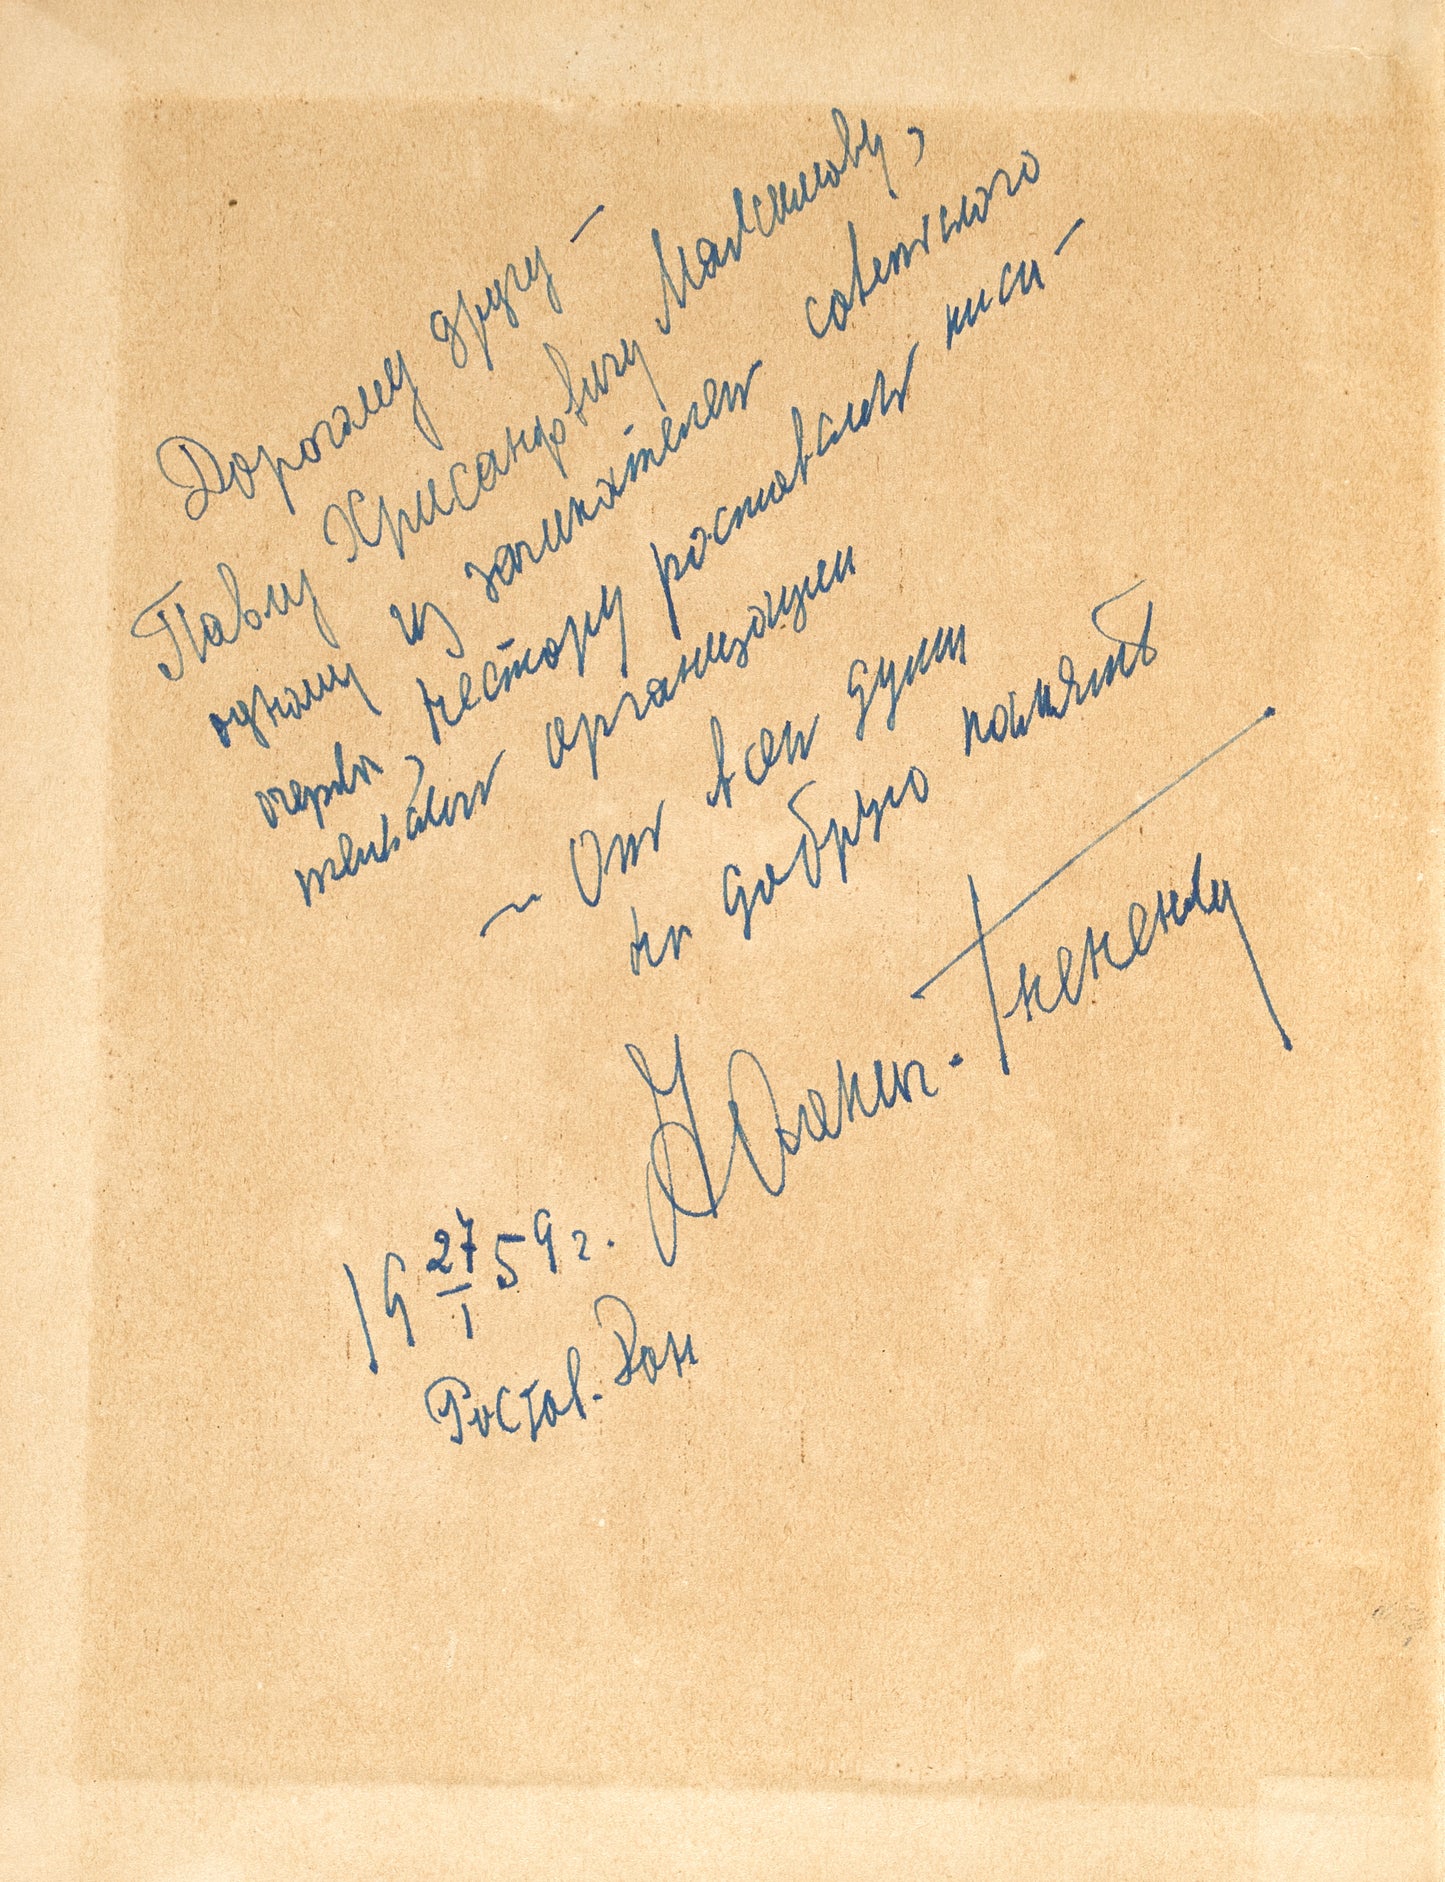 Дорогому другу –
Павлу Хрисандовичу Максимову,
одному из зачинателей советского
очерка, нестору ростовской писа-
тельской организации
– От всей души
на добрую память
19 27/I 59 г.
Ростов-Дон